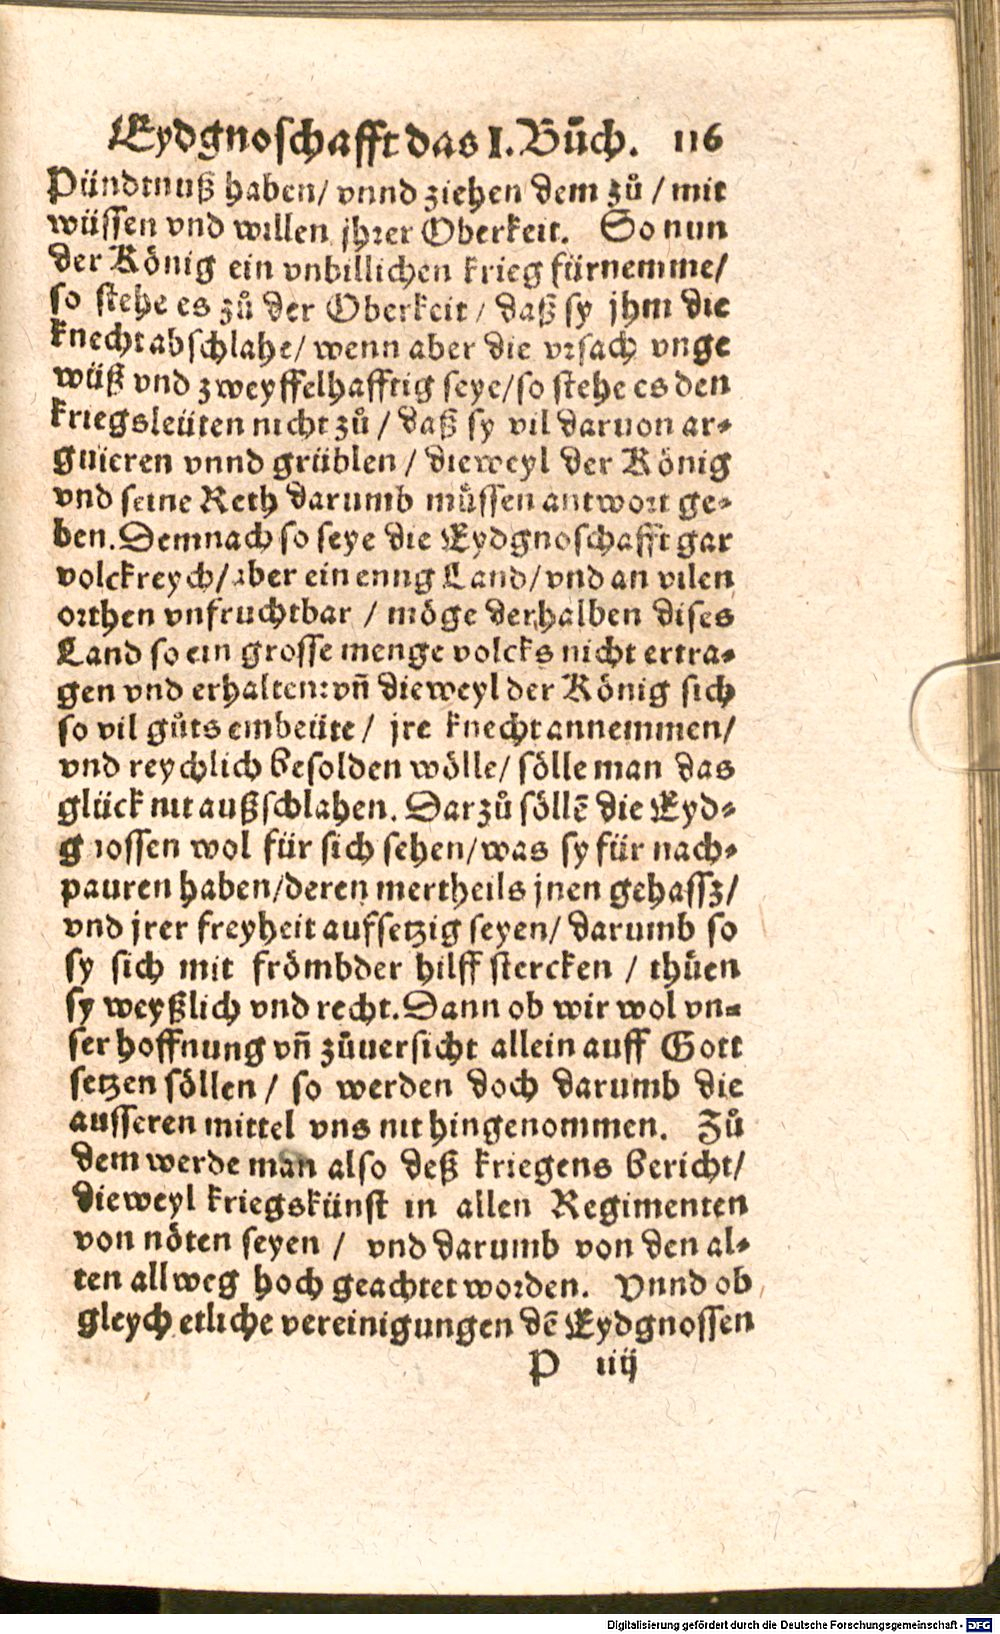 Eydgnoschafft das I. Bůch. 116
Pündtnuß haben/ vnnd ziehen dem zů / mit
wüssen vnd willen jhrer Oberkeit. So nun
der König ein vnbillichen krieg fürnemme/
so stehe es zů der Oberkeit / daß sy jhm die
knecht abschlahe/ wenn aber die vrsach vnge
wüß vnd zweyffelhafftig seye/so stehe es den
kriegsleüten nicht zů / daß sy vil daruon ar⸗
guieren vnnd grüblen / dieweyl der König
vnd seine Reth darumb müssen antwort ge⸗
ben. Demnach so seye die Eydgnoschafft gar
volckreych/ aber ein enng Land/ vnd an vilen
orthen vnfruchtbar / möge derhalben dises
Land so ein grosse menge volcks nicht ertra⸗
gen vnd erhalten: vñ dieweyl der König sich
so vil gůts embeüte / jre knecht annemmen/
vnd reychlich besolden wölle/ sölle man das
glück nit außschlahen. Darzů söllē die Eyd⸗
gnossen wol für sich sehen/ was sy für nach⸗
pauren haben/deren mertheils jnen gehassz/
vnd jrer freyheit aufsetzig seyen/ darumb so
sy sich mit frömbder hilff stercken / thüen
sy weyßlich vnd recht. Dann ob wir wol vn⸗
ser hoffnung vñ zůuersicht allein auff Gott
setzen söllen / so werden doch darumb die
ausseren mittel vns nit hingenommen. Zů
dem werde man also deß kriegens bericht/
dieweyl kriegskünst in allen Regimenten
von nöten seyen / vnd darumb von den al⸗
ten allweg hoch geachtet worden. Vnnd ob
gleych etliche vereinigungen dē Eydgnossen
P iiij
Digitalisierung gefördert durch die Deutsche Forschungsgemeinschaft - DFG